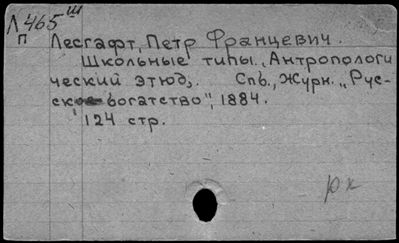 Л465ш
п
Лесгафт, Петр Францевич.
Школьные типы. "Антропологи
ческий этюд". Спб., Журн. "Рус-
ское богатство", 1884.
124 стр.
рк